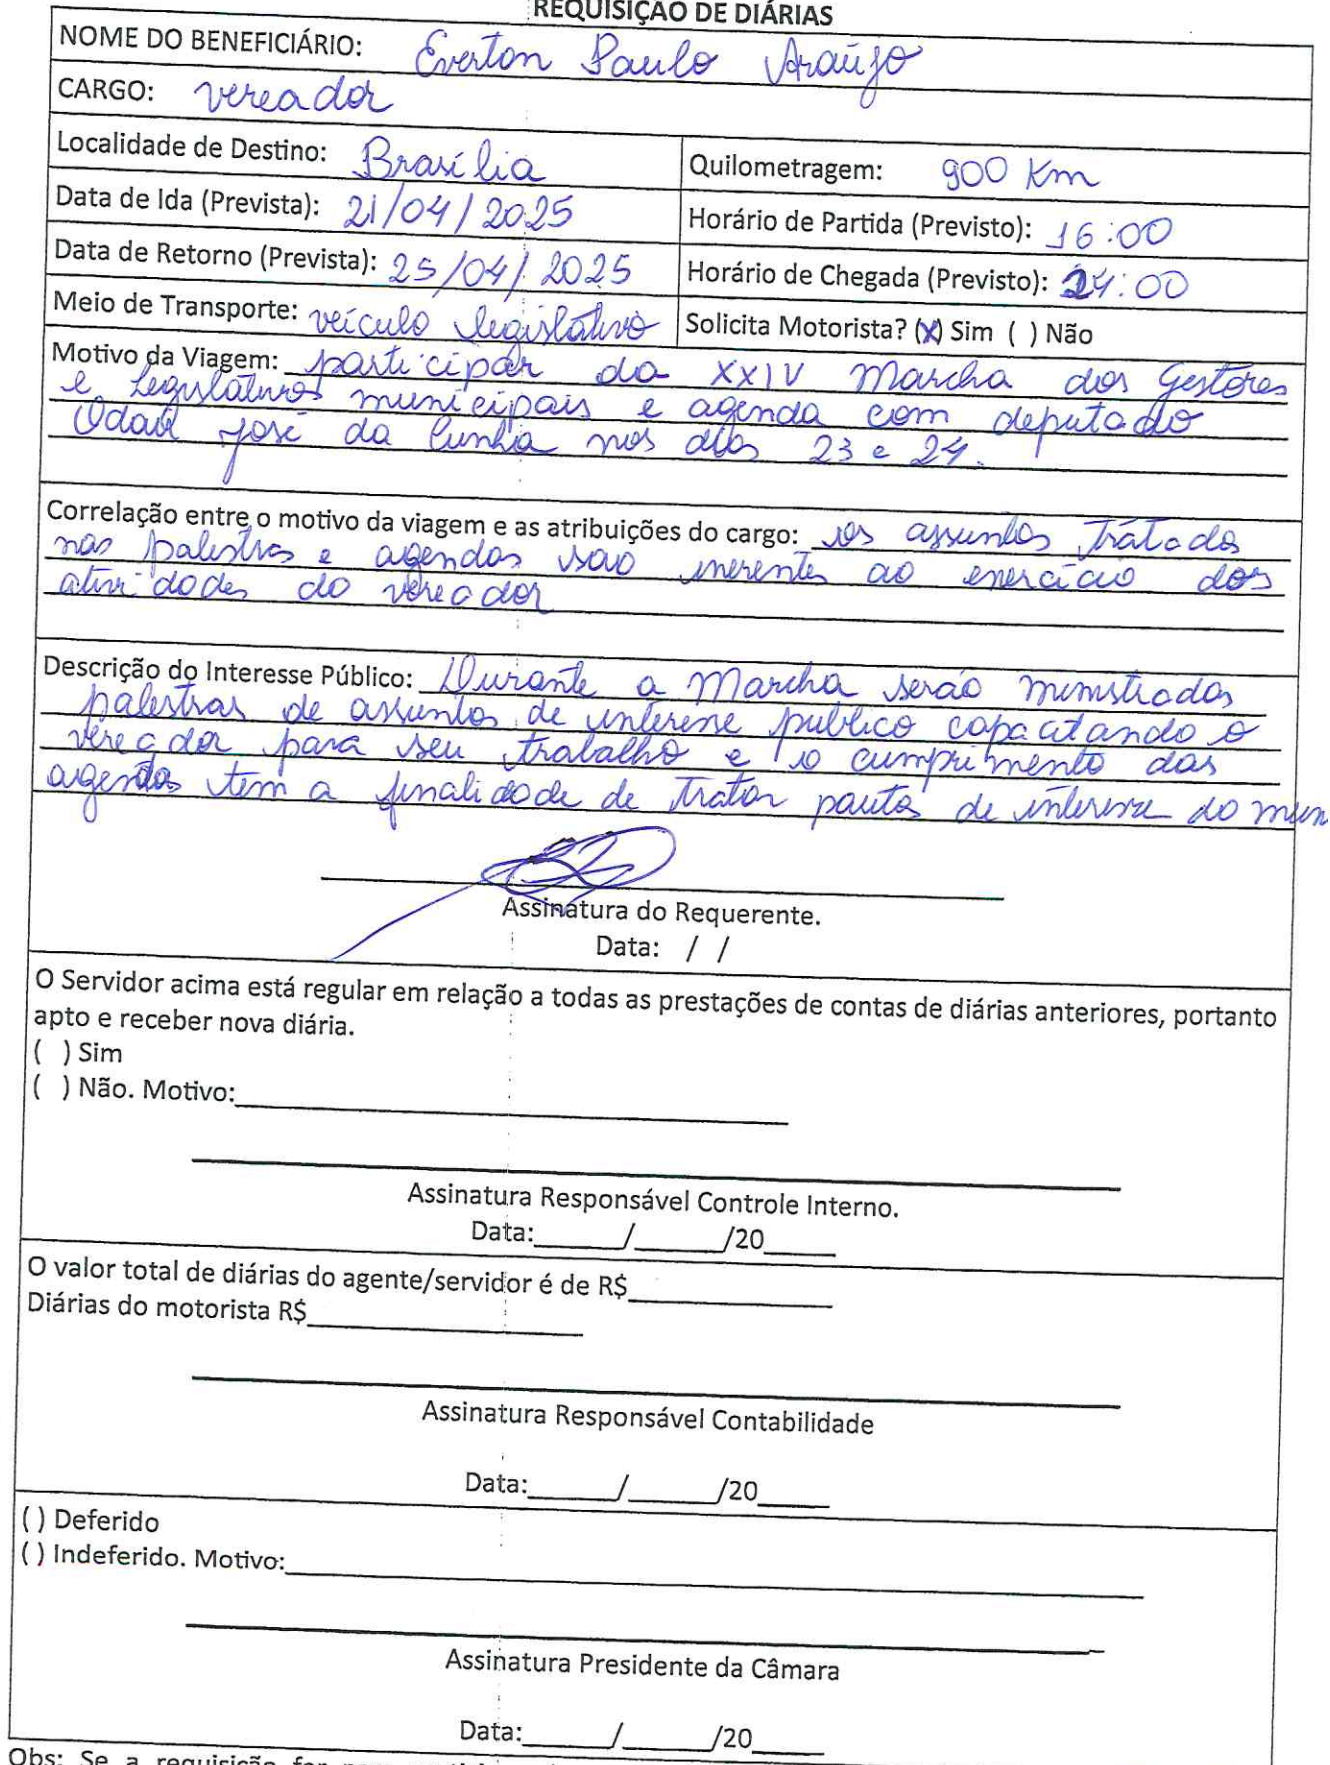 REQUISIÇÃO DE DIÁRIAS
NOME DO BENEFICIÁRIO: Everton Paulo Araújo
CARGO: vereador
Localidade de Destino: Brasília
Quilometragem: 900 Km
Data de Ida (Prevista): 21/04/2025
Horário de Partida (Previsto): 16:00
Data de Retorno (Prevista): 25/04/2025
Horário de Chegada (Previsto): 24:00
Meio de Transporte: veículo legislativo
Solicita Motorista? (X) Sim ( ) Não
Motivo da Viagem: participar da XXIV Marcha dos Gestores
e Legislativos municipais e agenda com deputado
Odair José da Cunha nos dias 23 e 24.
Correlação entre o motivo da viagem e as atribuições do cargo: os assuntos tratados
nas palestras e agendas são inerentes ao exercício das
atividades do vereador
Descrição do Interesse Público: Durante a Marcha serão ministradas
palestras de assuntos de interesse público capacitando o
vereador para seu trabalho e o cumprimento das
agendas tem a finalidade de tratar pautas de interesse do mun
Assinatura do Requerente.
Data: / /
O Servidor acima está regular em relação a todas as prestações de contas de diárias anteriores, portanto
apto e receber nova diária.
( ) Sim
( ) Não. Motivo:
Assinatura Responsável Controle Interno.
Data:______/______/20_____
O valor total de diárias do agente/servidor é de R$
Diárias do motorista R$
Assinatura Responsável Contabilidade
Data:______/______/20_____
( ) Deferido
( ) Indeferido. Motivo:
Assinatura Presidente da Câmara
Data:______/______/20_____
Obs: Se a requisição for